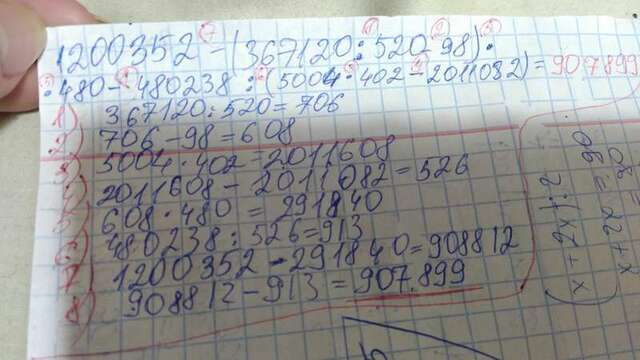 1200352 - (367120 : 520 - 98) ·
· 480 - 480238 : (5004 · 402 - 2011082) = 907899
1) 367120 : 520 = 706
2) 706 - 98 = 608
3) 5004 · 402 = 2011608
4) 2011608 - 2011082 = 526
5) 608 · 480 = 291840
6) 480238 : 526 = 913
7) 1200352 - 291840 = 908812
8) 908812 - 913 = 907.899
(x + 2x) : 2